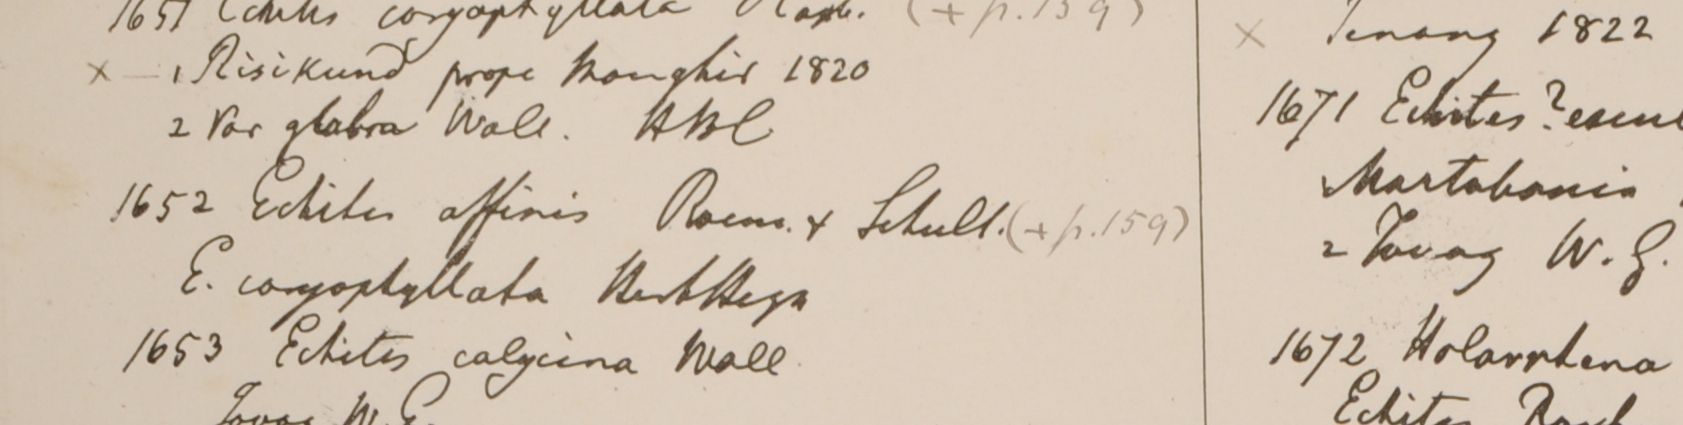 1651 Echites caryophyllata Roxb. (+ p. 159)
x — 1 Risikund prope Monghir 1820
2 Var glabra Wall. HBC
1652 Echites affinis Roem. & Schult. (+ p. 159)
E. caryophyllata Herb Heyn
1653 Echites calycina Wall
Tavoy W. G.
x Penang 1822
1671 Echites ? escul
Martabania
2 Tavoy W. G.
1672 Holarrhena
Echites Roxb